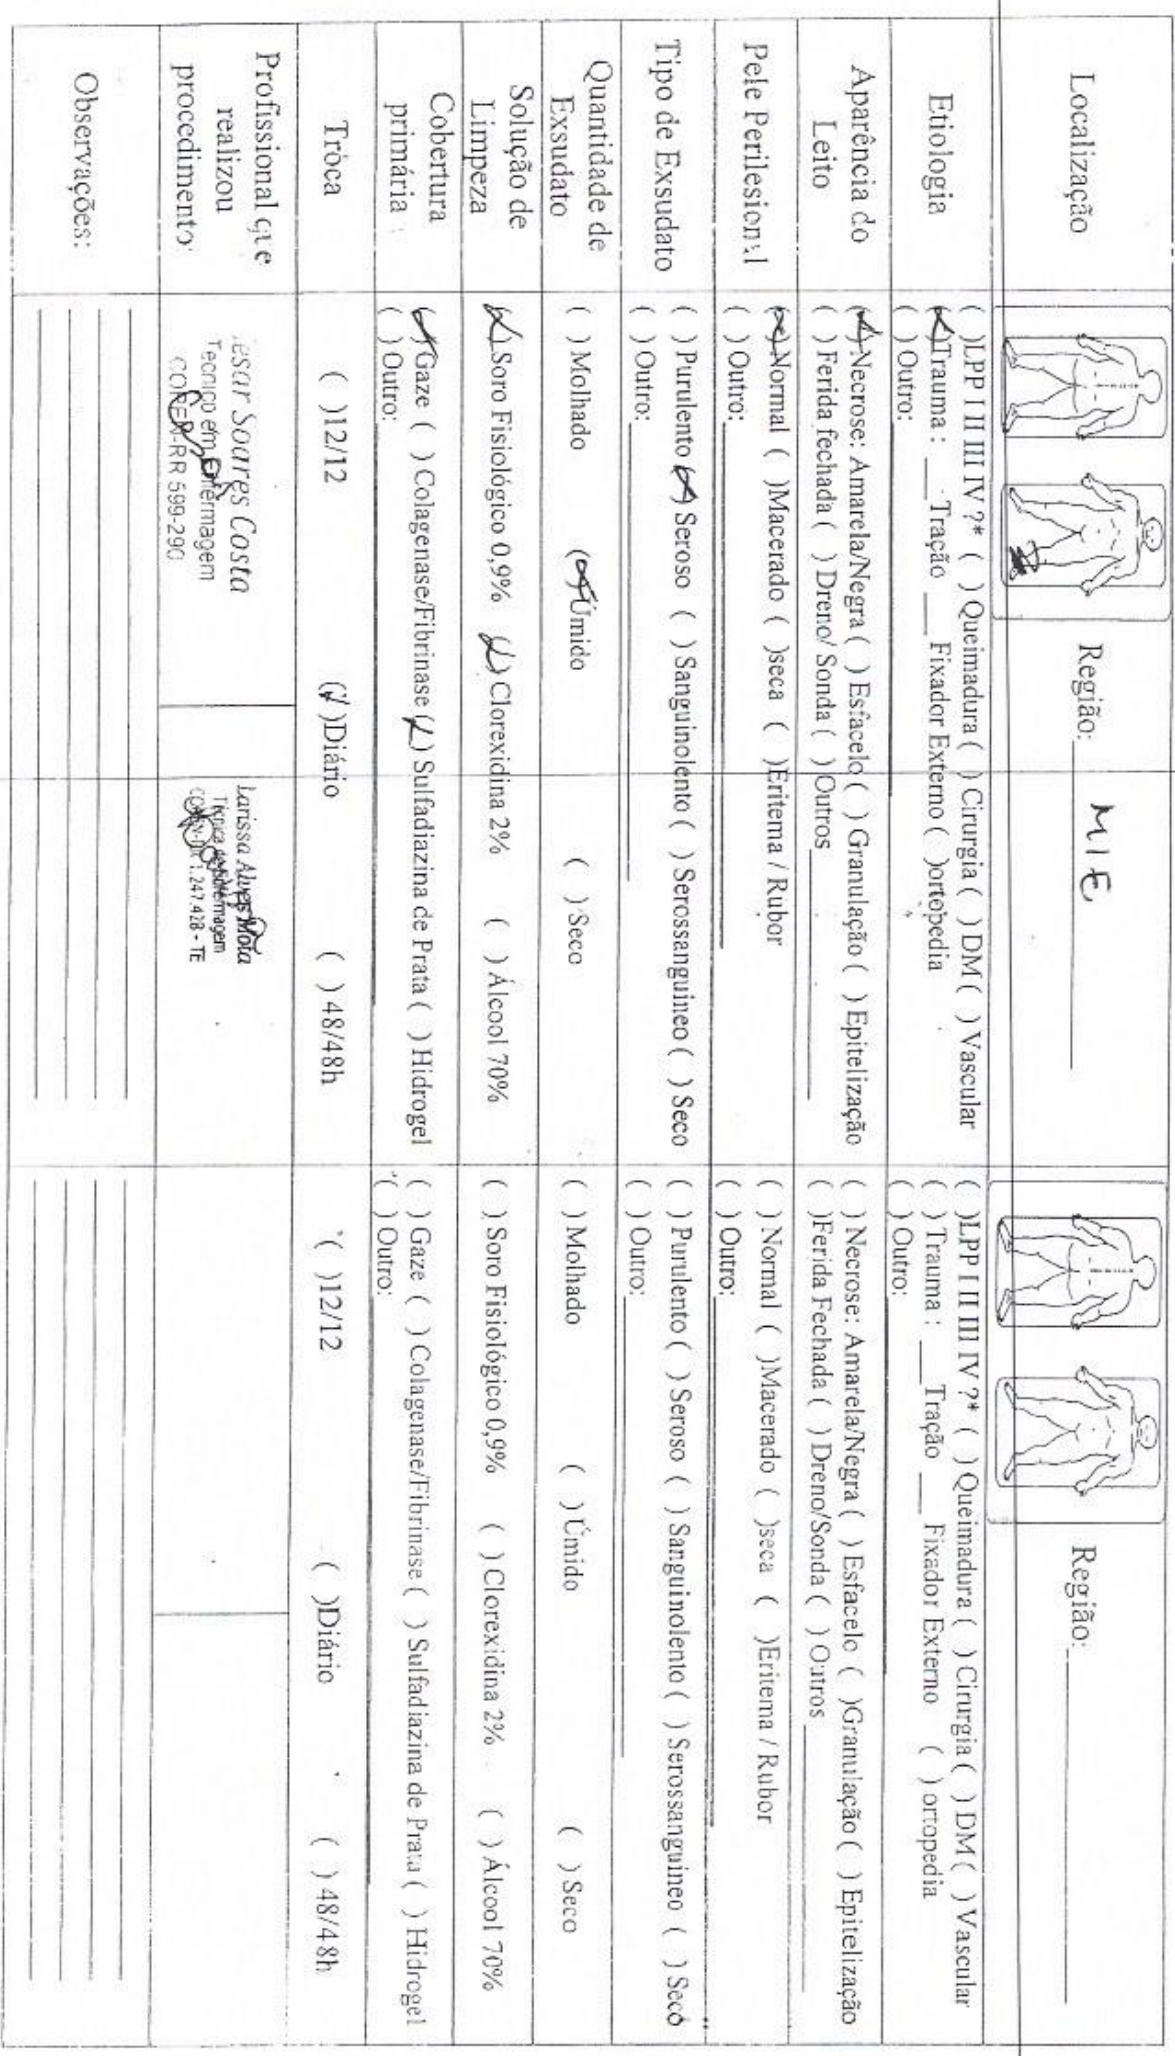 Localização
Região: MIE
Região:
Etiologia
( )LPP I II III IV ?* ( ) Queimadura ( ) Cirurgia ( ) DM ( ) Vascular
(X)Trauma : ___Tração ___ Fixador Externo ( )ortopedia
( ) Outro:
( )LPP I II III IV ?* ( ) Queimadura ( ) Cirurgia ( ) DM ( ) Vascular
( ) Trauma : ___Tração ___ Fixador Externo ( ) ortopedia
( ) Outro:
Aparência do
Leito
(X)Necrose: Amarela/Negra ( ) Esfacelo ( ) Granulação ( ) Epitelização
( ) Ferida fechada ( ) Dreno/ Sonda ( ) Outros
( ) Necrose: Amarela/Negra ( ) Esfacelo ( )Granulação ( ) Epitelização
( )Ferida Fechada ( ) Dreno/Sonda ( ) Outros
Pele Perilesional
(X)Normal ( )Macerado ( )seca ( )Eritema / Rubor
( ) Outro:
( ) Normal ( )Macerado ( )seca ( )Eritema / Rubor
( ) Outro:
Tipo de Exsudato
( ) Purulento (X) Seroso ( ) Sanguinolento ( ) Serossanguineo ( ) Seco
( ) Outro:
( ) Purulento ( ) Seroso ( ) Sanguinolento ( ) Serossanguineo ( ) Seco
( ) Outro:
Quantidade de
Exsudato
( ) Molhado (X)Úmido ( ) Seco
( ) Molhado ( ) Úmido ( ) Seco
Solução de
Limpeza
(X) Soro Fisiológico 0,9% (X) Clorexidina 2% ( ) Álcool 70%
( ) Soro Fisiológico 0,9% ( ) Clorexidina 2% ( ) Álcool 70%
Cobertura
primária
(X)Gaze ( ) Colagenase/Fibrinase (X) Sulfadiazina de Prata ( ) Hidrogel
( ) Outro:
( ) Gaze ( ) Colagenase/Fibrinase ( ) Sulfadiazina de Prata ( ) Hidrogel
( ) Outro:
Troca
( )12/12 (X)Diário ( ) 48/48h
( )12/12 ( )Diário ( ) 48/48h
Profissional que
realizou
procedimento:
esar Soares Costa
Técnico em Enfermagem
COREN-RR 599-290
Larissa Alves Mota
Técnica de Enfermagem
1.247.428 - TE
Observações: